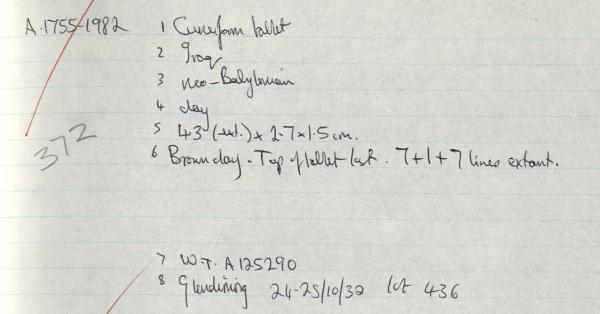 A.1755-1982 1 Cuneiform tablet
2 Iraq
3 neo-Babylonian
4 clay
5 4.3 (ext.) x 2.7 x 1.5 cm.
372
6 Brown clay. Top of tablet lost. 7+1+7 lines extant.
7 W.T. A125290
8 Glendining 24-25/10/32 lot 436